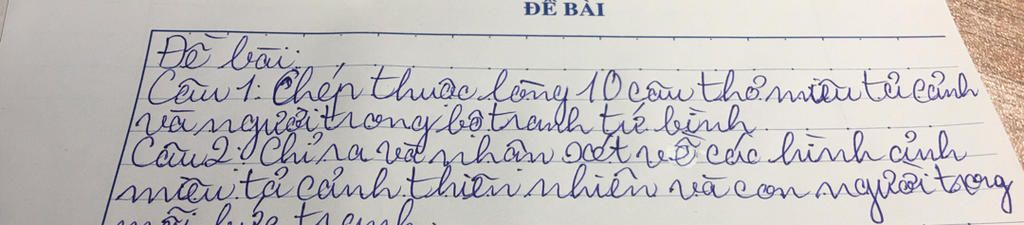 ĐỀ BÀI
Đề bài:
Câu 1: Chép thuộc lòng 10 câu thơ miêu tả cảnh
và người trong bộ tranh tứ bình
Câu 2: Chỉ ra và nhận xét về các hình ảnh
miêu tả cảnh thiên nhiên và con người trong
mỗi bức tranh.